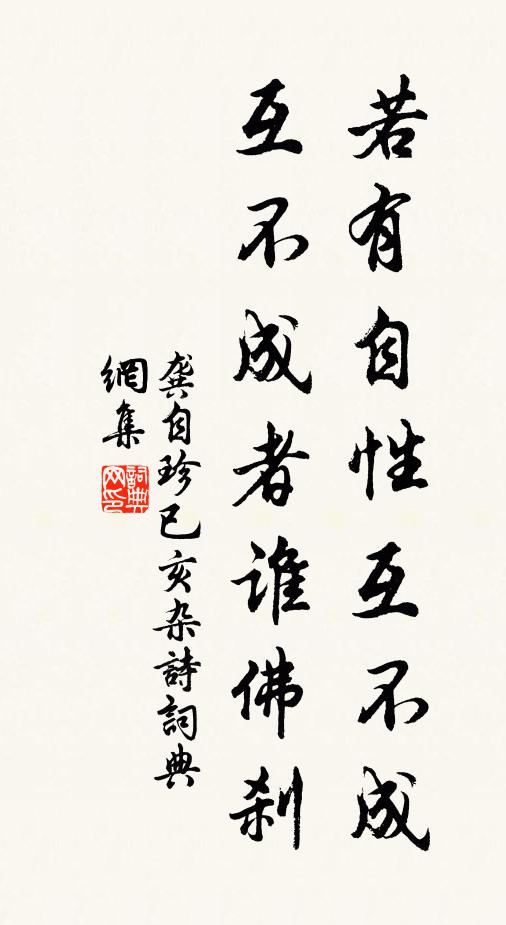 若有自性互不成
互不成者誰佛刹
龚自珍己亥杂詩詞典
網集
詞典
网印